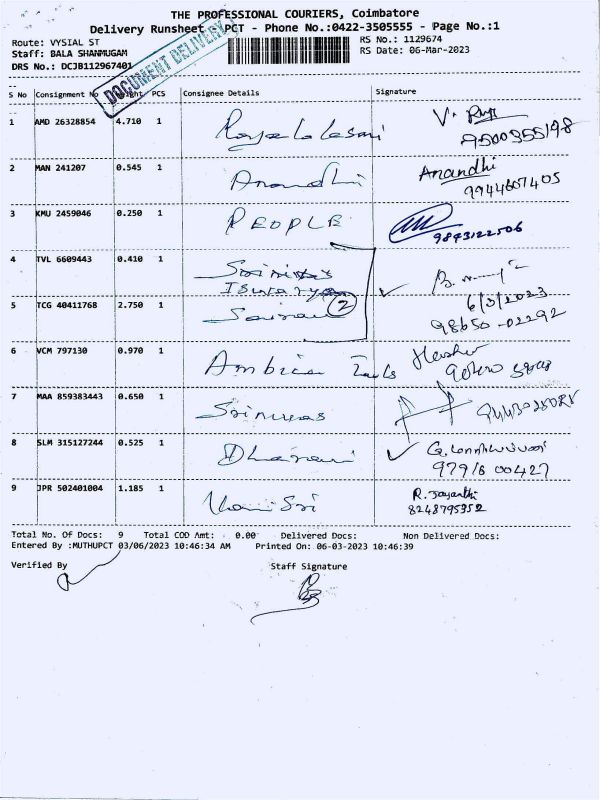 THE PROFESSIONAL COURIERS, Coimbatore
Delivery Runsheet - PCT - Phone No.:0422-3505555 - Page No.:1
Route: VYSIAL ST
Staff: BALA SHANMUGAM
DRS No.: DCJB112967401
RS No.: 1129674
RS Date: 06-Mar-2023
DOCUMENT DELIVERY
S No Consignment No Weight PCS Consignee Details Signature
1 AMD 26328854 4.710 1
2 MAN 241207 0.545 1 Anandhi Anandhi
9944607405
3 KMU 2459046 0.250 1 PEOPLE
9843122506
4 TVL 6609443 0.410 1
6/3/2023
5 TCG 40411768 2.750 1 2
98650-02292
6 VCM 797130 0.970 1 Ambica
7 MAA 859383443 0.650 1 Srinivas
8 SLM 315127244 0.525 1 Dharani
97916 00427
9 JPR 502401004 1.185 1 R. Jayanthi
8248795352
Total No. Of Docs: 9 Total COD Amt: 0.00 Delivered Docs: Non Delivered Docs:
Entered By :MUTHUPCT 03/06/2023 10:46:34 AM Printed On: 06-03-2023 10:46:39
Verified By Staff Signature